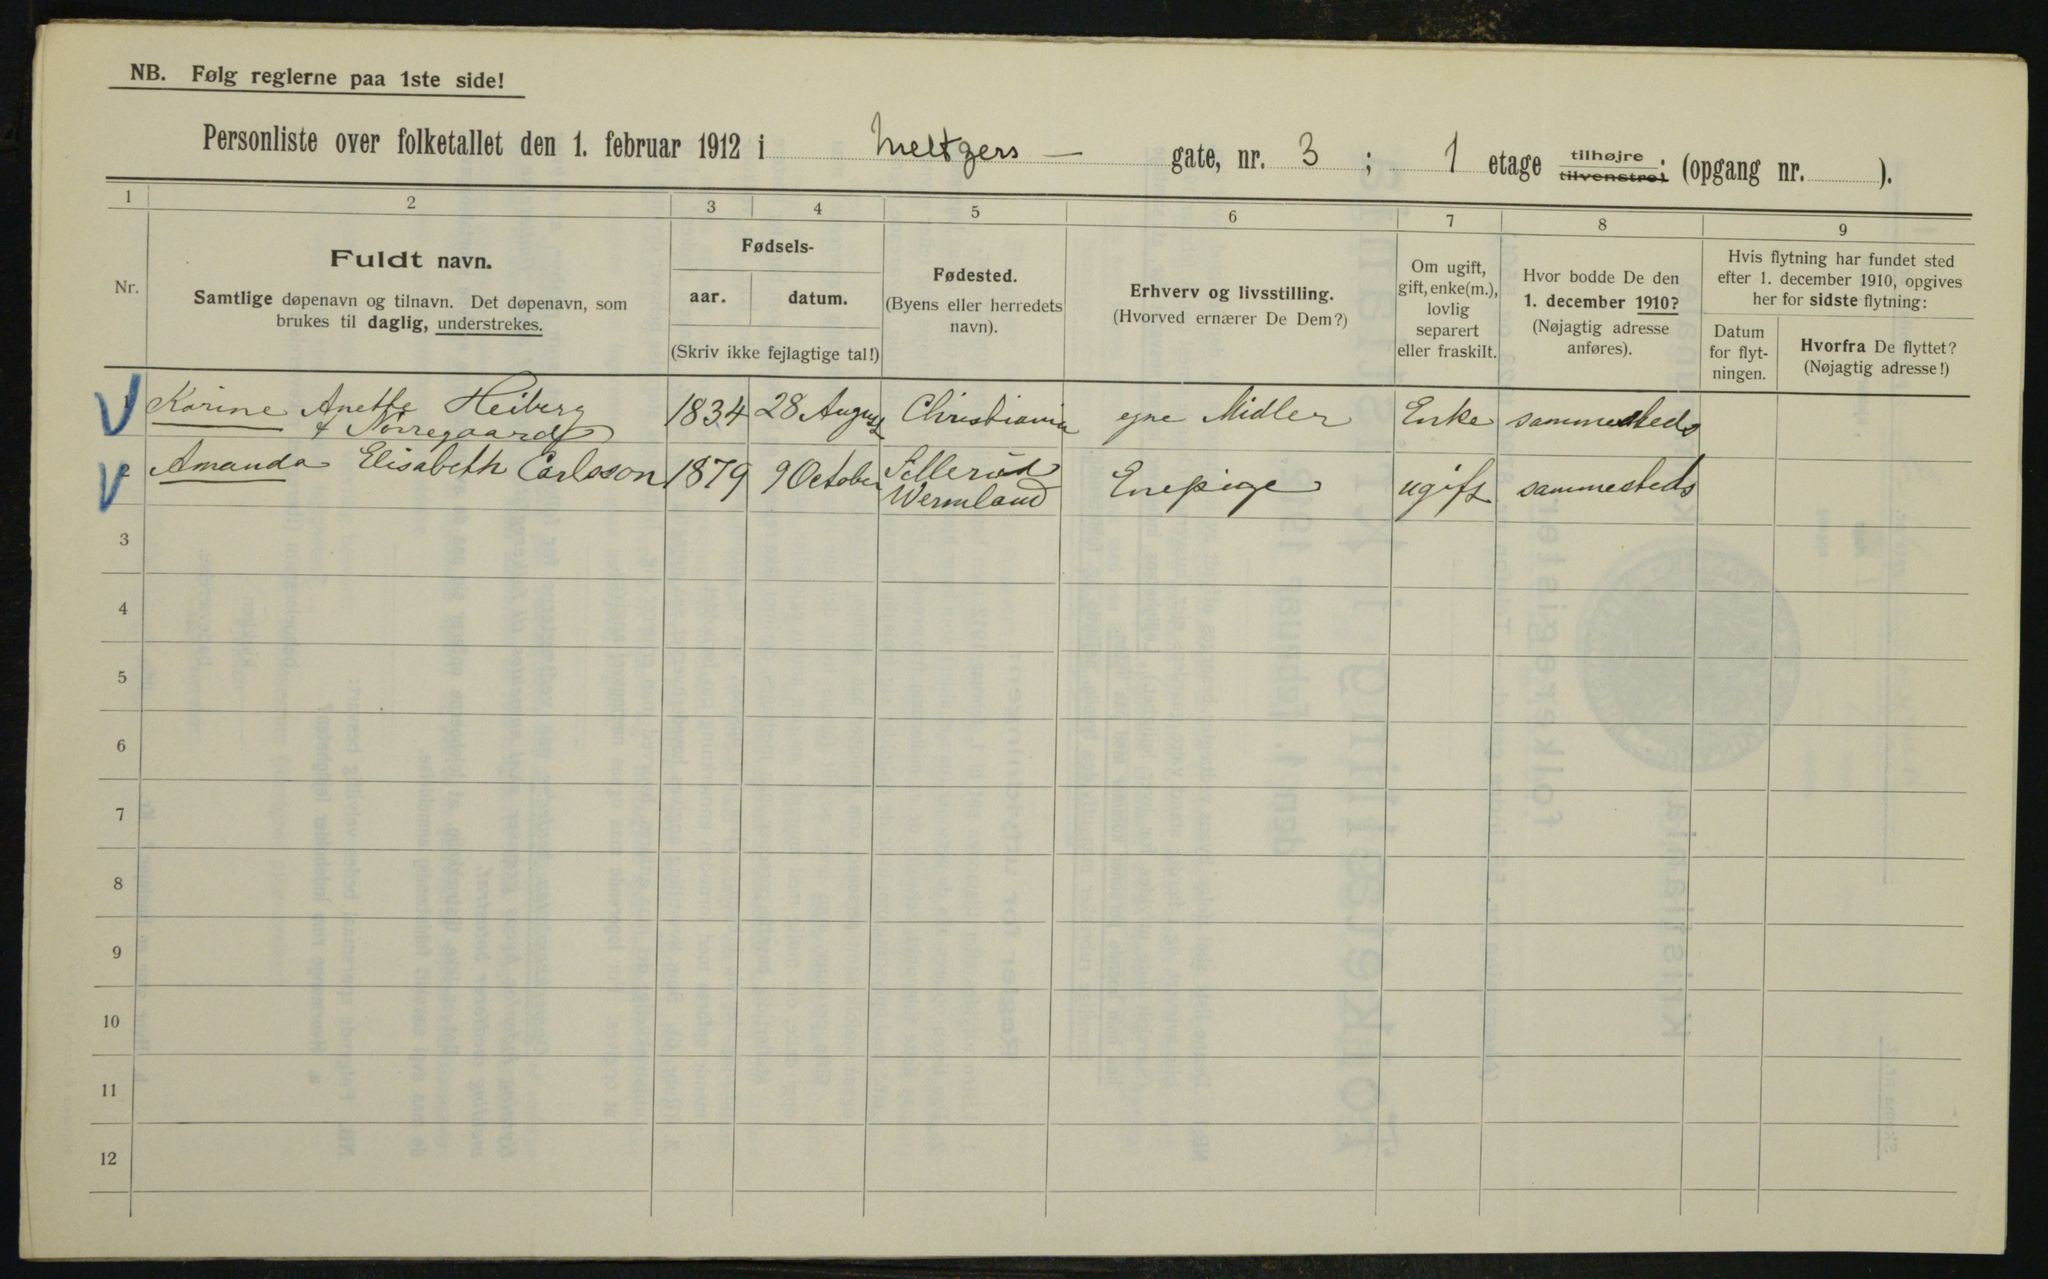 NB. Følg reglerne paa 1ste side!
Personliste over folketallet den 1. februar 1912 i Meltzers — gate, nr. 3 ; 1 etage tilhøjre. tilvenstre. (opgang nr. ).
1 2 3 4 5 6 7 8 9
Nr.
Fuldt navn.
Samtlige døpenavn og tilnavn. Det døpenavn, som
brukes til daglig, understrekes.
Fødsels-
aar. datum.
(Skriv ikke fejlagtige tal!)
Fødested.
(Byens eller herredets
navn).
Erhverv og livsstilling.
(Hvorved ernærer De Dem?)
Om ugift,
gift, enke(m.),
lovlig
separert
eller fraskilt.
Hvor bodde De den
1. december 1910?
(Nøjagtig adresse
anføres).
Hvis flytning har fundet sted
efter 1. december 1910, opgives
her for sidste flytning:
Datum
for flyt-
ningen.
Hvorfra De flyttet?
(Nøjagtig adresse!)
1 Karine Anette Heiberg 1834 28 August Christiania egne Midler Enke sammesteds
f Nørregaard
2 Amanda Elisabeth Carlsson 1879 9 October Sillerud Enepige ugift sammesteds
Wermland
3
4
5
6
7
8
9
10
11
12